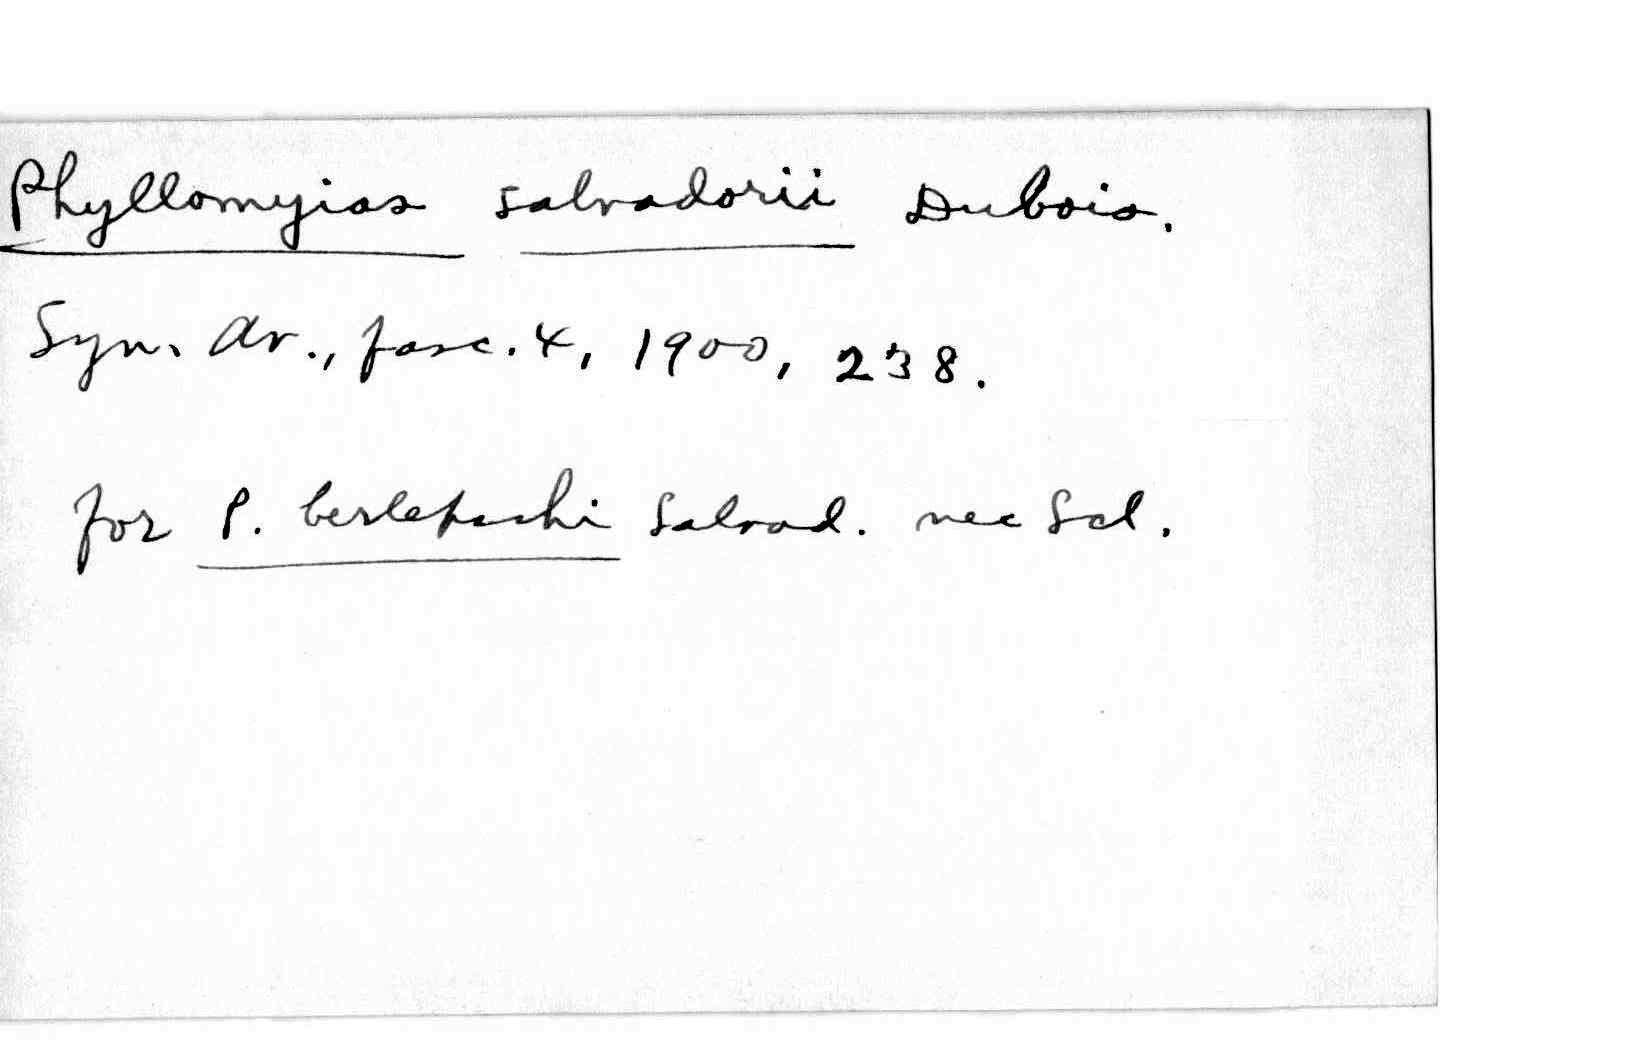 Phyllomyias salvadorii Dubois.
Syn. Av., fasc. 4, 1900, 238.
for P. berlepschi Salvad. nec Scl.